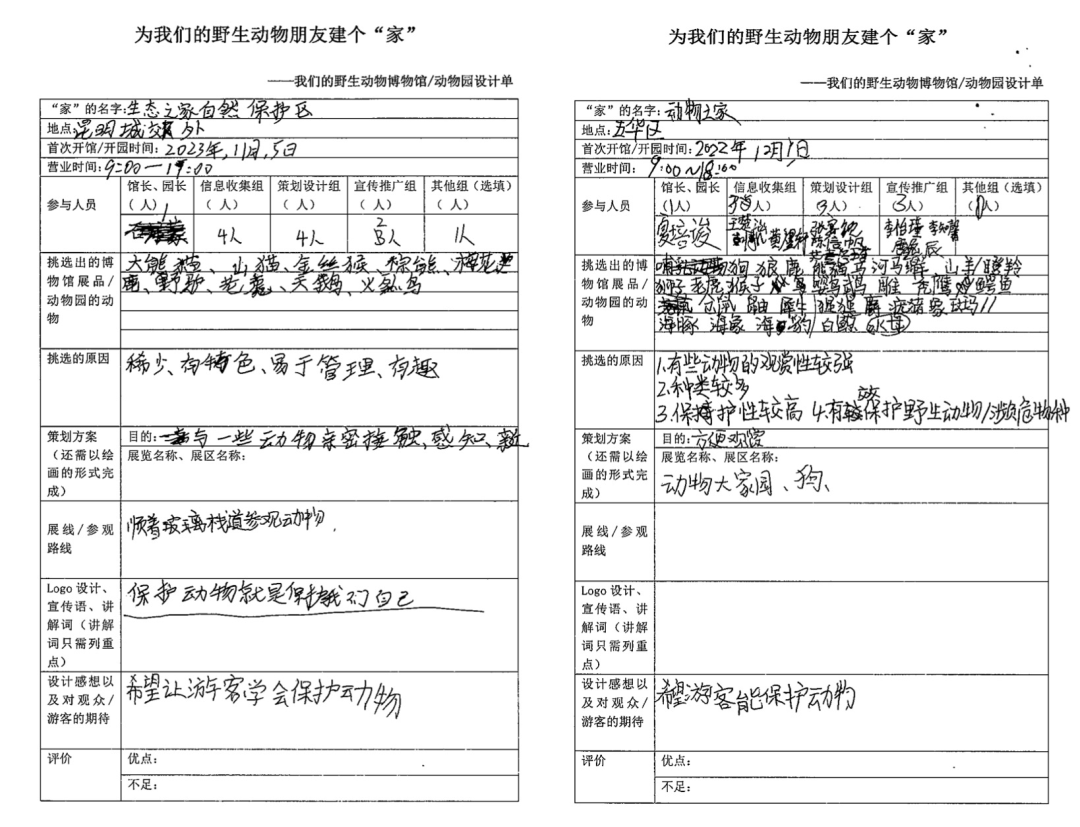 为我们的野生动物朋友建个“家”
——我们的野生动物博物馆/动物园设计单
“家”的名字：生态之家自然保护区
地点：昆明城郊外
首次开馆/开园时间：2023年，11月，5日
营业时间：9:00—17:00
参与人员
馆长、园长
（ 人）1
信息收集组
（ 人）
4人
策划设计组
（ 人）
4人
宣传推广组
（ 人）
人
其他组（选填）
（ 人）
1人
挑选出的博物馆展品/动物园的动物
大熊猫、山猫、金丝猴、棕熊、梅花
鹿、野驴、老鹰、天鹅、火烈鸟
挑选的原因
稀少、有特色、易于管理、有趣
策划方案
（还需以绘画的形式完成）
目的：与一些动物亲密接触、感知、
展览名称、展区名称：
展线/参观路线
顺着玻璃栈道参观动物.
Logo 设计、宣传语、讲解词（讲解词只需列重点）
保护动物就是保护我们自己
设计感想以及对观众/游客的期待
希望让游客学会保护动物
评价
优点：
不足：
为我们的野生动物朋友建个“家”
——我们的野生动物博物馆/动物园设计单
“家”的名字：动物之家
地点：五华区
首次开馆/开园时间：2022年12月1日
营业时间：9:00~18:00
参与人员
馆长、园长
（1人）
信息收集组
人）
策划设计组
（3人）
宣传推广组
（3人）
其他组（选填）
人）
挑选出的博物馆展品/动物园的动物
狗 狼 鹿 熊猫 马 河马 山羊/羚羚
狮子 老虎 猴子 老鹰 鳄鱼
犀牛 家 斑马
海豚 海象 海狗 白鲸
挑选的原因
1.有些动物的观赏性较强
2.种类较多
3.保护性较高 4.有效保护野生动物/濒危物种
策划方案
（还需以绘画的形式完成）
目的：方便观赏
展览名称、展区名称：
动物大家园、狗、
展线/参观路线
Logo 设计、宣传语、讲解词（讲解词只需列重点）
设计感想以及对观众/游客的期待
希望游客能保护动物
评价
优点：
不足：